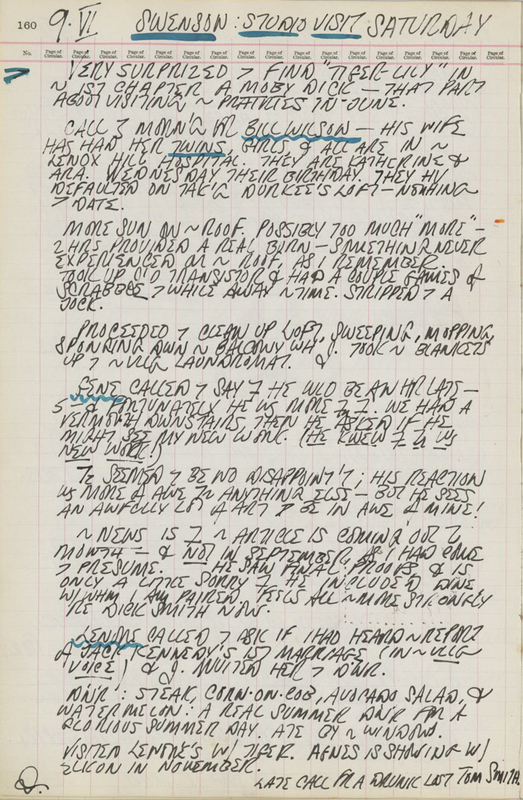 160 9.VI SWENSON: STUDIO VISIT SATURDAY
No. Page of Circular. Page of Circular. Page of Circular. Page of Circular. Page of Circular. Page of Circular. Page of Circular. Page of Circular. Page of Circular. Page of Circular. Page of Circular. Page of Circular. Page of Circular. Page of Circular. Page of Circular. Page of Circular.
VERY SURPRIZED > FIND "TIGER-LILY" IN
~ 1ST CHAPTER MOBY DICK — THAT PART
ABOUT VISITING ~ PRAIRIES IN JUNE.
CALL MORN'G BILL WILSON — HIS WIFE
HAS HAD HER TWINS, GIRLS & ALL ARE IN ~
LENOX HILL HOSPITAL. THEY ARE KATHERINE &
ARA. WEDNESDAY THEIR BIRTHDAY. THEY HV
DEFAULTED ON TAK'G DURKEE'S LOFT — NOTHING
> DATE.
MORE SUN ON ~ ROOF. POSSIBLY TOO MUCH "MORE" —
2 HRS PROVIDED A REAL BURN — SOMETHING NEVER
EXPERIENCED ON ~ ROOF, AS I REMEMBER.
TOOK UP TRANSISTOR & HAD A COUPLE GAMES
SCRABBLE > WHILE AWAY ~ TIME. STRIPPED > A
JOCK.
PROCEEDED > CLEAN UP LOFT, SWEEPING, MOPPING,
SPONGING DOWN ~ BALCONY W/ J. TOOK ~ BLANKETS
UP > ~ VLLG LAUNDROMAT.
GENE CALLED > SAY HE WLD BE AN HR LATE —
5 — & FORTUNATELY HE WS MORE. WE HAD A
VERMOUTH DOWNSTAIRS, THEN HE ASKED IF HE
MIGHT SEE MY NEW WORK. (HE KNEW WS
NEW WORK!)
SEEMED > BE NO DISAPPOINT'T; HIS REACTION
WS MORE AWE ANYTHING ELSE — BUT HE SEES
AN AWFULLY LOT ART > BE IN AWE MINE!
~ NEWS IS ~ ARTICLE IS COMING OUT
MONTH — & NOT IN SEPTEMBER, AS I HAD COME
> PRESUME. HE SAW FINAL PROOFS & IS
ONLY A LITTLE SORRY HE INCLUDED DINE
W/ WHM I AM PAIRED. FEELS ALL ~ MORE STRONGLY
RE DICK SMITH NOW.
LENORE CALLED > ASK IF I HAD HEARD ~ REPORT
JACK KENNEDY'S 1ST MARRIAGE (IN ~ VLLG
VOICE) & J. INVITED HER > DNR.
DNR: STEAK, CORN-ON-COB, AVOCADO SALAD, &
WATERMELON: A REAL SUMMER DNR FR A
GLORIOUS SUMMER DAY. ATE BY ~ WINDOW.
VISITED LENORE'S W/ TIGER. AGNES IS SHOWING W/
ELKON IN NOVEMBER.
LATE CALL FR A DRUNK LOST TOM SMITH.